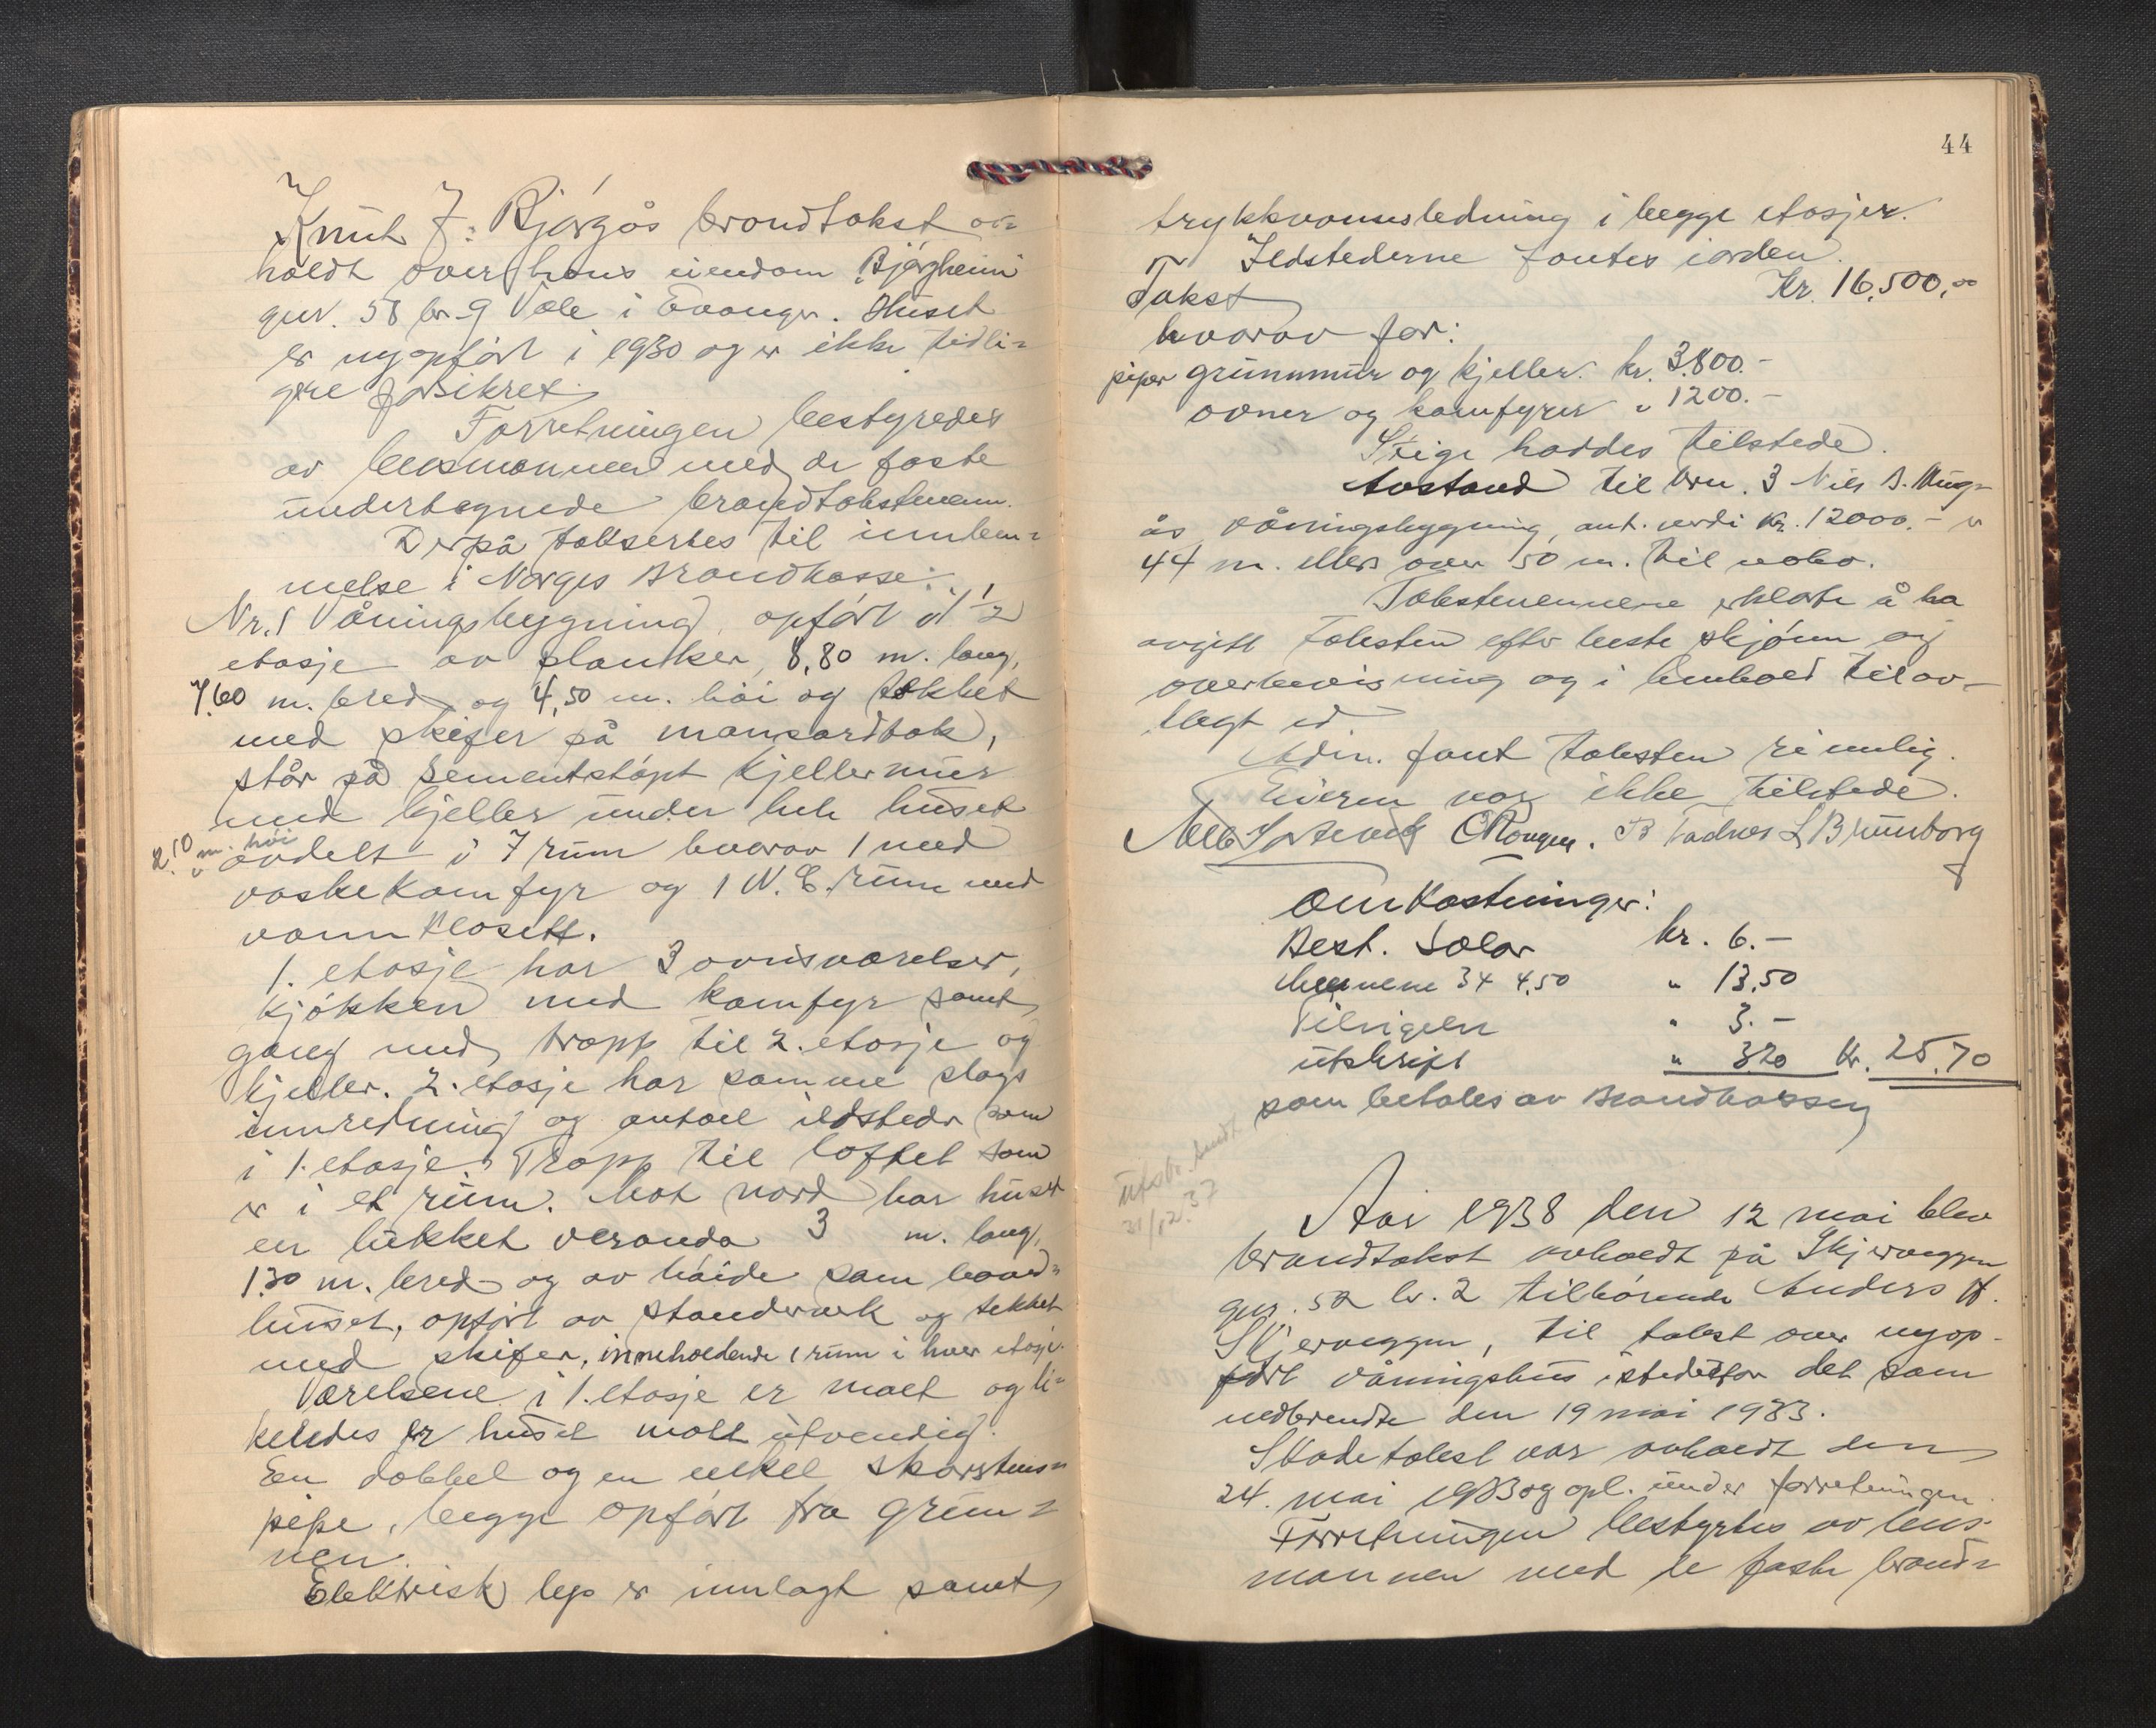 Knut J. Bjørgås brandtakst av=
holdt over hans eiendom Bjørgheim
gnr. 58 br. 9 Væle i Evanger. Huset
er nyopført i 1930 og er ikke tidli=
gere forsikret.
Forretningen bestyredes
av lensmannen med de faste
undertegnede brandtakstmenn.
Derpå takseres til innlem=
melse i Norges Brandkasse:
Nr. 1 Våningsbygning, opført i 1 1/2
etasje av planker, 8,80 m. lang,
7,60 m. bred og 4,50 m. høi og tekket
med skifer på mansardtak,
står på sementstøpt kjellermur
med kjeller under hele huset
2,10 m. høi
avdelt i 7 rum hvorav 1 med
vaskekomfyr og 1 W.C. rum med
vannklosett.
1. etasje har 3 ovnsværelser,
kjøkken med komfyr samt
gang med trapp til 2. etasje og
kjeller. 2. etasje har samme slags
innredning og antall ildsteder som
i 1. etasje. Trapp til loftet som
er i et rum. Mot nord har huset
en lukket veranda 3 m. lang,
1,30 m. bred og av høide som hoved=
huset, opført av standverk og tekket
med skifer, inneholdende 1 rum i hver etasje.
Værelsene i 1. etasje er malt og li=
keledes er huset malt utvendig.
En dobbel og en enkel skorstens=
pipe, begge opført fra grun=
nen.
Elektrisk lys er innlagt samt
44
trykkvannsledning i begge etasjer.
Ildstederne fantes i orden.
Takst Kr. 16,500,00
hvorav for:
piper grunnmur og kjeller kr. 3.800.-
ovner og komfyrer " 1200.-
Stige haddes tilstede.
Avstand til brn. 3 Nils B. Mug-
ås våningsbygning, ant. verdi kr. 12000.- er
44 m. ellers over 50 m. til nabo.
Takstmennene erklærte å ha
avgitt taksten efter beste skjønn og
overbevisning og i henhold til av-
lagt ed
Adm. fant taksten rimelig.
Eieren var ikke tilstede.
O Rongen. B Tadnes L Brunborg
Omkostninger:
Best. Salær kr. 6.-
Mennene 3 x 4,50 " 13,50
Tilsigelse " 3.-
utskrift " 320 kr. 25,70
som betales av Brandkassen
Utskr. sendt
31/12.37
Aar 1938 den 12 mai blev
brandtakst avholdt på Skjerveggen
gnr. 52 br. 2 tilhørende Anders H.
Skjerveggen, til takst over nyop-
ført våningshus istedetfor det som
nedbrendte den 19 mai 1933.
Skadetakst var avholdt den
24. mai 1933 og opl. under forretningen.
Forretningen bestyrtes av lens-
mannen med de faste brand=